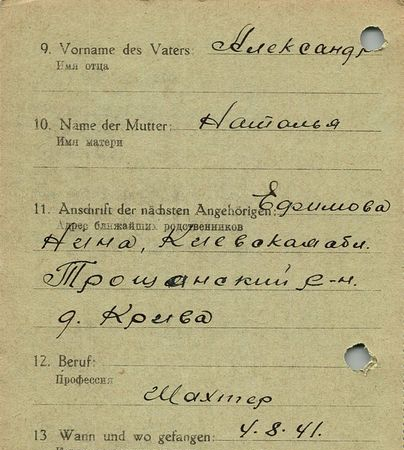 9. Vorname des Vaters: Александр
Имя отца
10. Name der Mutter: Наталья
Имя матери
11. Anschrift der nächsten Angehörigen: Ефимова
Адрес ближайших родственников
Нина, Киевская обл.
Трощанский р-н.
д. Крива
12. Beruf:
Профессия
Шахтер
13 Wann und wo gefangen: 4.8.41.